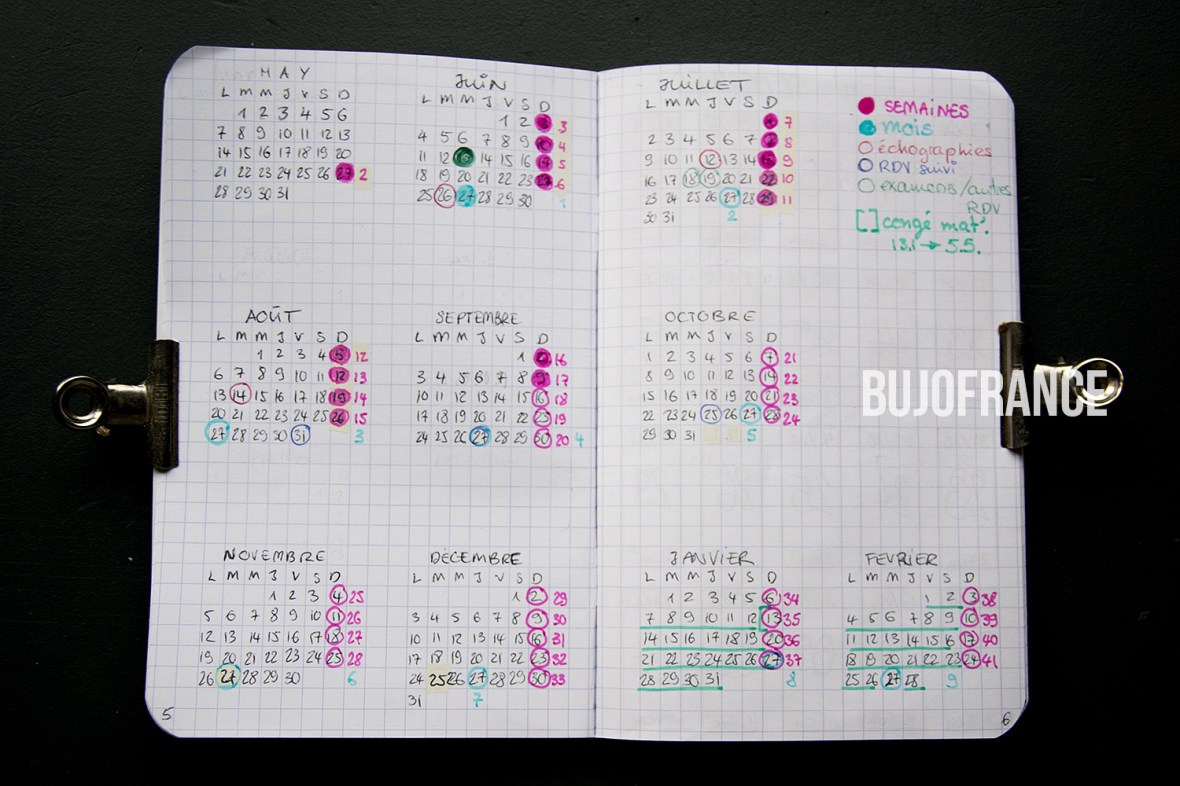 MAY
L M M J V S D
1 2 3 4 5 6
7 8 9 10 11 12 13
14 15 16 17 18 19 20
21 22 23 24 25 26 27 2
28 29 30 31
JUIN
L M M J V S D
1 2 3 3
4 5 6 7 8 9 10 4
11 12 13 14 15 16 17 5
18 19 20 21 22 23 24 6
25 26 27 28 29 30 1
JUILLET
L M M J V S D
1 7
2 3 4 5 6 7 8 8
9 10 11 12 13 14 15 9
16 17 18 19 20 21 22 10
23 24 25 26 27 28 29 11
30 31 2
SEMAINES
mois
échographies
RDV suivi
examens/autres
RDV
[ ] congé mat'.
13.1 → 5.5.
AOÛT
L M M J V S D
1 2 3 4 5 12
6 7 8 9 10 11 12 13
13 14 15 16 17 18 19 14
20 21 22 23 24 25 26 15
27 28 29 30 31 3
SEPTEMBRE
L M M J V S D
1 2 16
3 4 5 6 7 8 9 17
10 11 12 13 14 15 16 18
17 18 19 20 21 22 23 19
24 25 26 27 28 29 30 20 4
OCTOBRE
L M M J V S D
1 2 3 4 5 6 7 21
8 9 10 11 12 13 14 22
15 16 17 18 19 20 21 23
22 23 24 25 26 27 28 24
29 30 31 5
BUJOFRANCE
NOVEMBRE
L M M J V S D
1 2 3 4 25
5 6 7 8 9 10 11 26
12 13 14 15 16 17 18 27
19 20 21 22 23 24 25 28
26 27 28 29 30 6
DÉCEMBRE
L M M J V S D
1 2 29
3 4 5 6 7 8 9 30
10 11 12 13 14 15 16 31
17 18 19 20 21 22 23 32
24 25 26 27 28 29 30 33
31 7
JANVIER
L M M J V S D
1 2 3 4 5 6 34
7 8 9 10 11 12 13 35
14 15 16 17 18 19 20 36
21 22 23 24 25 26 27 37
28 29 30 31 8
FEVRIER
L M M J V S D
1 2 3 38
4 5 6 7 8 9 10 39
11 12 13 14 15 16 17 40
18 19 20 21 22 23 24 41
25 26 27 28 9
5
6